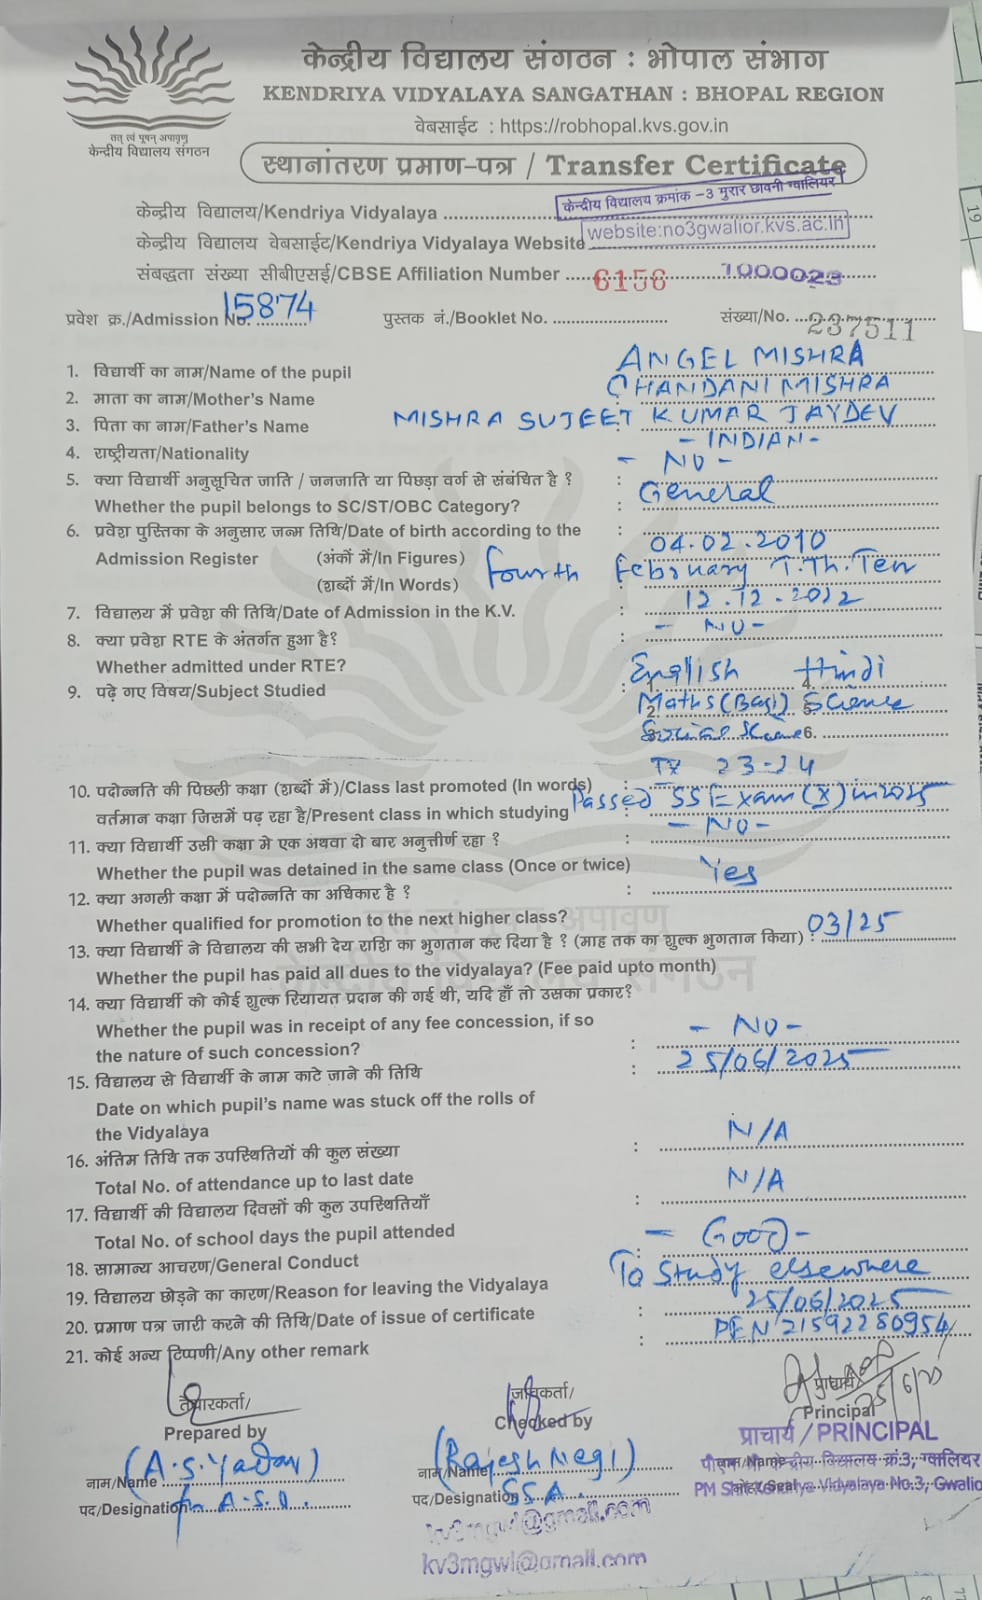 केन्द्रीय विद्यालय संगठन : भोपाल संभाग
KENDRIYA VIDYALAYA SANGATHAN : BHOPAL REGION
वेबसाईट : https://robhopal.kvs.gov.in
तत् त्वं पूषन् अपावृणु
केन्द्रीय विद्यालय संगठन
स्थानांतरण प्रमाण-पत्र / Transfer Certificate
केन्द्रीय विद्यालय/Kendriya Vidyalaya केन्द्रीय विद्यालय क्रमांक -3 मुरार छावनी ग्वालियर
केन्द्रीय विद्यालय वेबसाईट/Kendriya Vidyalaya Website website:no3gwalior.kvs.ac.in
संबद्धता संख्या सीबीएसई/CBSE Affiliation Number 6156 1000023
प्रवेश क्र./Admission No. 15874 पुस्तक नं./Booklet No. संख्या/No. 237511
1. विद्यार्थी का नाम/Name of the pupil ANGEL MISHRA
2. माता का नाम/Mother's Name : CHANDANI MISHRA
3. पिता का नाम/Father's Name MISHRA SUJEET KUMAR JAYDEV
4. राष्ट्रीयता/Nationality - INDIAN -
5. क्या विद्यार्थी अनुसूचित जाति / जनजाति या पिछड़ा वर्ग से संबंधित है ? : - NO -
Whether the pupil belongs to SC/ST/OBC Category? : General
6. प्रवेश पुस्तिका के अनुसार जन्म तिथि/Date of birth according to the :
Admission Register (अंकों में/In Figures) : 04.02.2010
(शब्दों में/In Words) Fourth February T.Th.Ten
7. विद्यालय में प्रवेश की तिथि/Date of Admission in the K.V. : 12.12.2012
8. क्या प्रवेश RTE के अंतर्गत हुआ है? : - NO -
Whether admitted under RTE?
9. पढ़े गए विषय/Subject Studied : 1. English 4. Hindi
2. Maths (Basi) 5. Science
3. Social 6.
10. पदोन्नति की पिछली कक्षा (शब्दों में)/Class last promoted (In words) : IX 23-24
वर्तमान कक्षा जिसमें पढ़ रहा है/Present class in which studying Passed SSExam (X) in 2025
11. क्या विद्यार्थी उसी कक्षा मे एक अथवा दो बार अनुत्तीर्ण रहा ? : - NO -
Whether the pupil was detained in the same class (Once or twice)
12. क्या अगली कक्षा में पदोन्नति का अधिकार है ? : Yes
Whether qualified for promotion to the next higher class?
13. क्या विद्यार्थी ने विद्यालय की सभी देय राशि का भुगतान कर दिया है ? (माह तक का शुल्क भुगतान किया) : 03/25
Whether the pupil has paid all dues to the vidyalaya? (Fee paid upto month)
14. क्या विद्यार्थी को कोई शुल्क रियायत प्रदान की गई थी, यदि हाँ तो उसका प्रकार?
Whether the pupil was in receipt of any fee concession, if so
the nature of such concession? : - NO -
15. विद्यालय से विद्यार्थी के नाम काटे जाने की तिथि : 25/06/2025
Date on which pupil's name was stuck off the rolls of
the Vidyalaya
16. अंतिम तिथि तक उपस्थितियों की कुल संख्या : N/A
Total No. of attendance up to last date
17. विद्यार्थी की विद्यालय दिवसों की कुल उपस्थितियाँ : N/A
Total No. of school days the pupil attended
18. सामान्य आचरण/General Conduct : - GOOD -
19. विद्यालय छोड़ने का कारण/Reason for leaving the Vidyalaya : To Study elsewhere
20. प्रमाण पत्र जारी करने की तिथि/Date of issue of certificate : 25/06/2025
21. कोई अन्य टिप्पणी/Any other remark : PEN 21592280954
तैयारकर्ता/ जांचकर्ता/ प्राचार्य
Prepared by Checked by Principal
प्राचार्य / PRINCIPAL
नाम/Name (A.S. Yadav) नाम/Name (Rajesh Negi) नाम/Name केन्द्रीय विद्यालय क्रं.3, ग्वालियर
पद/Designation A.S.O. पद/Designation SSA. Vidyalaya No.3, Gwalio
kv3mgwl@gmail.com
kv3mgwl@gmail.com